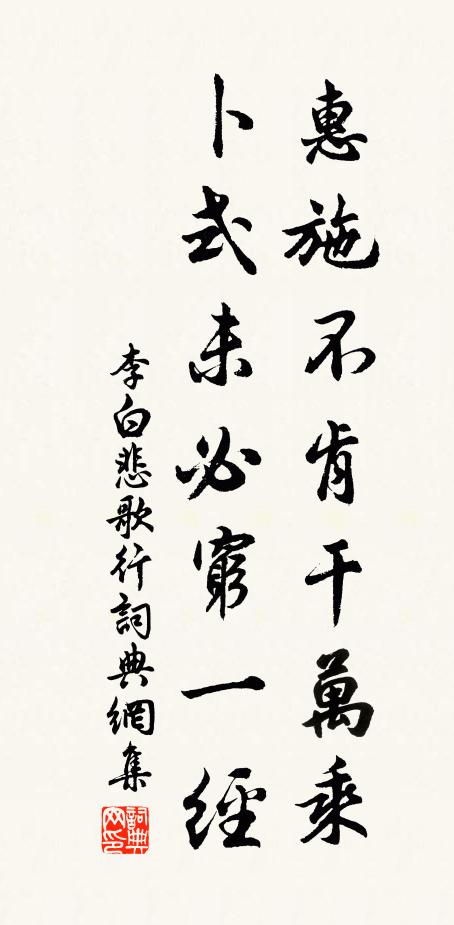 惠施不肯干萬乘
卜式未必窮一經
李白悲歌行詞典網集
詞典网印